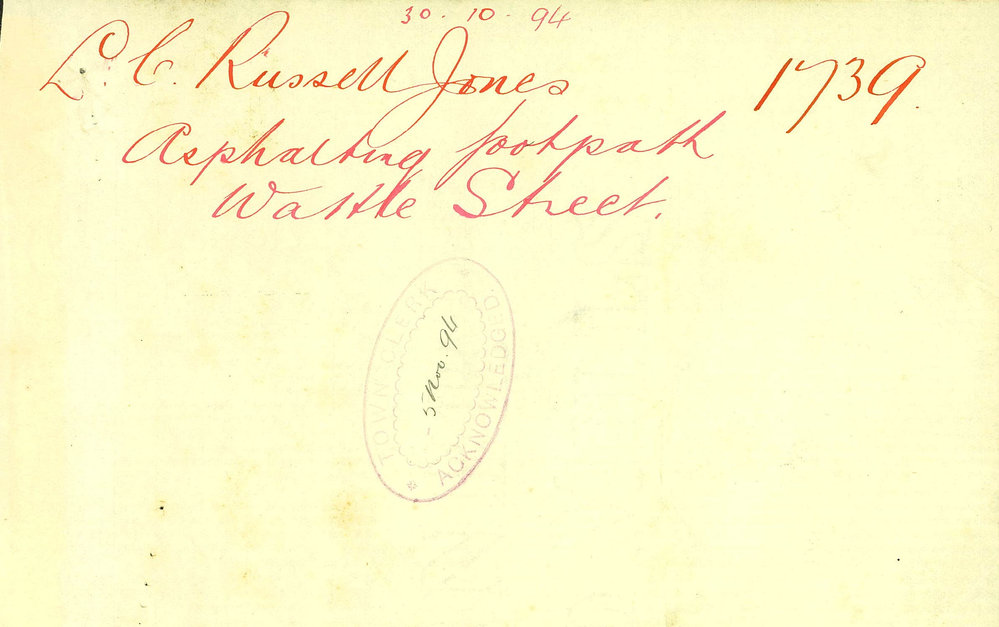 30. 10. 94
L. C. Russell Jones 1739.
Asphalting footpath
Wattle Street.
TOWN CLERK
5 Nov. 94
ACKNOWLEDGED